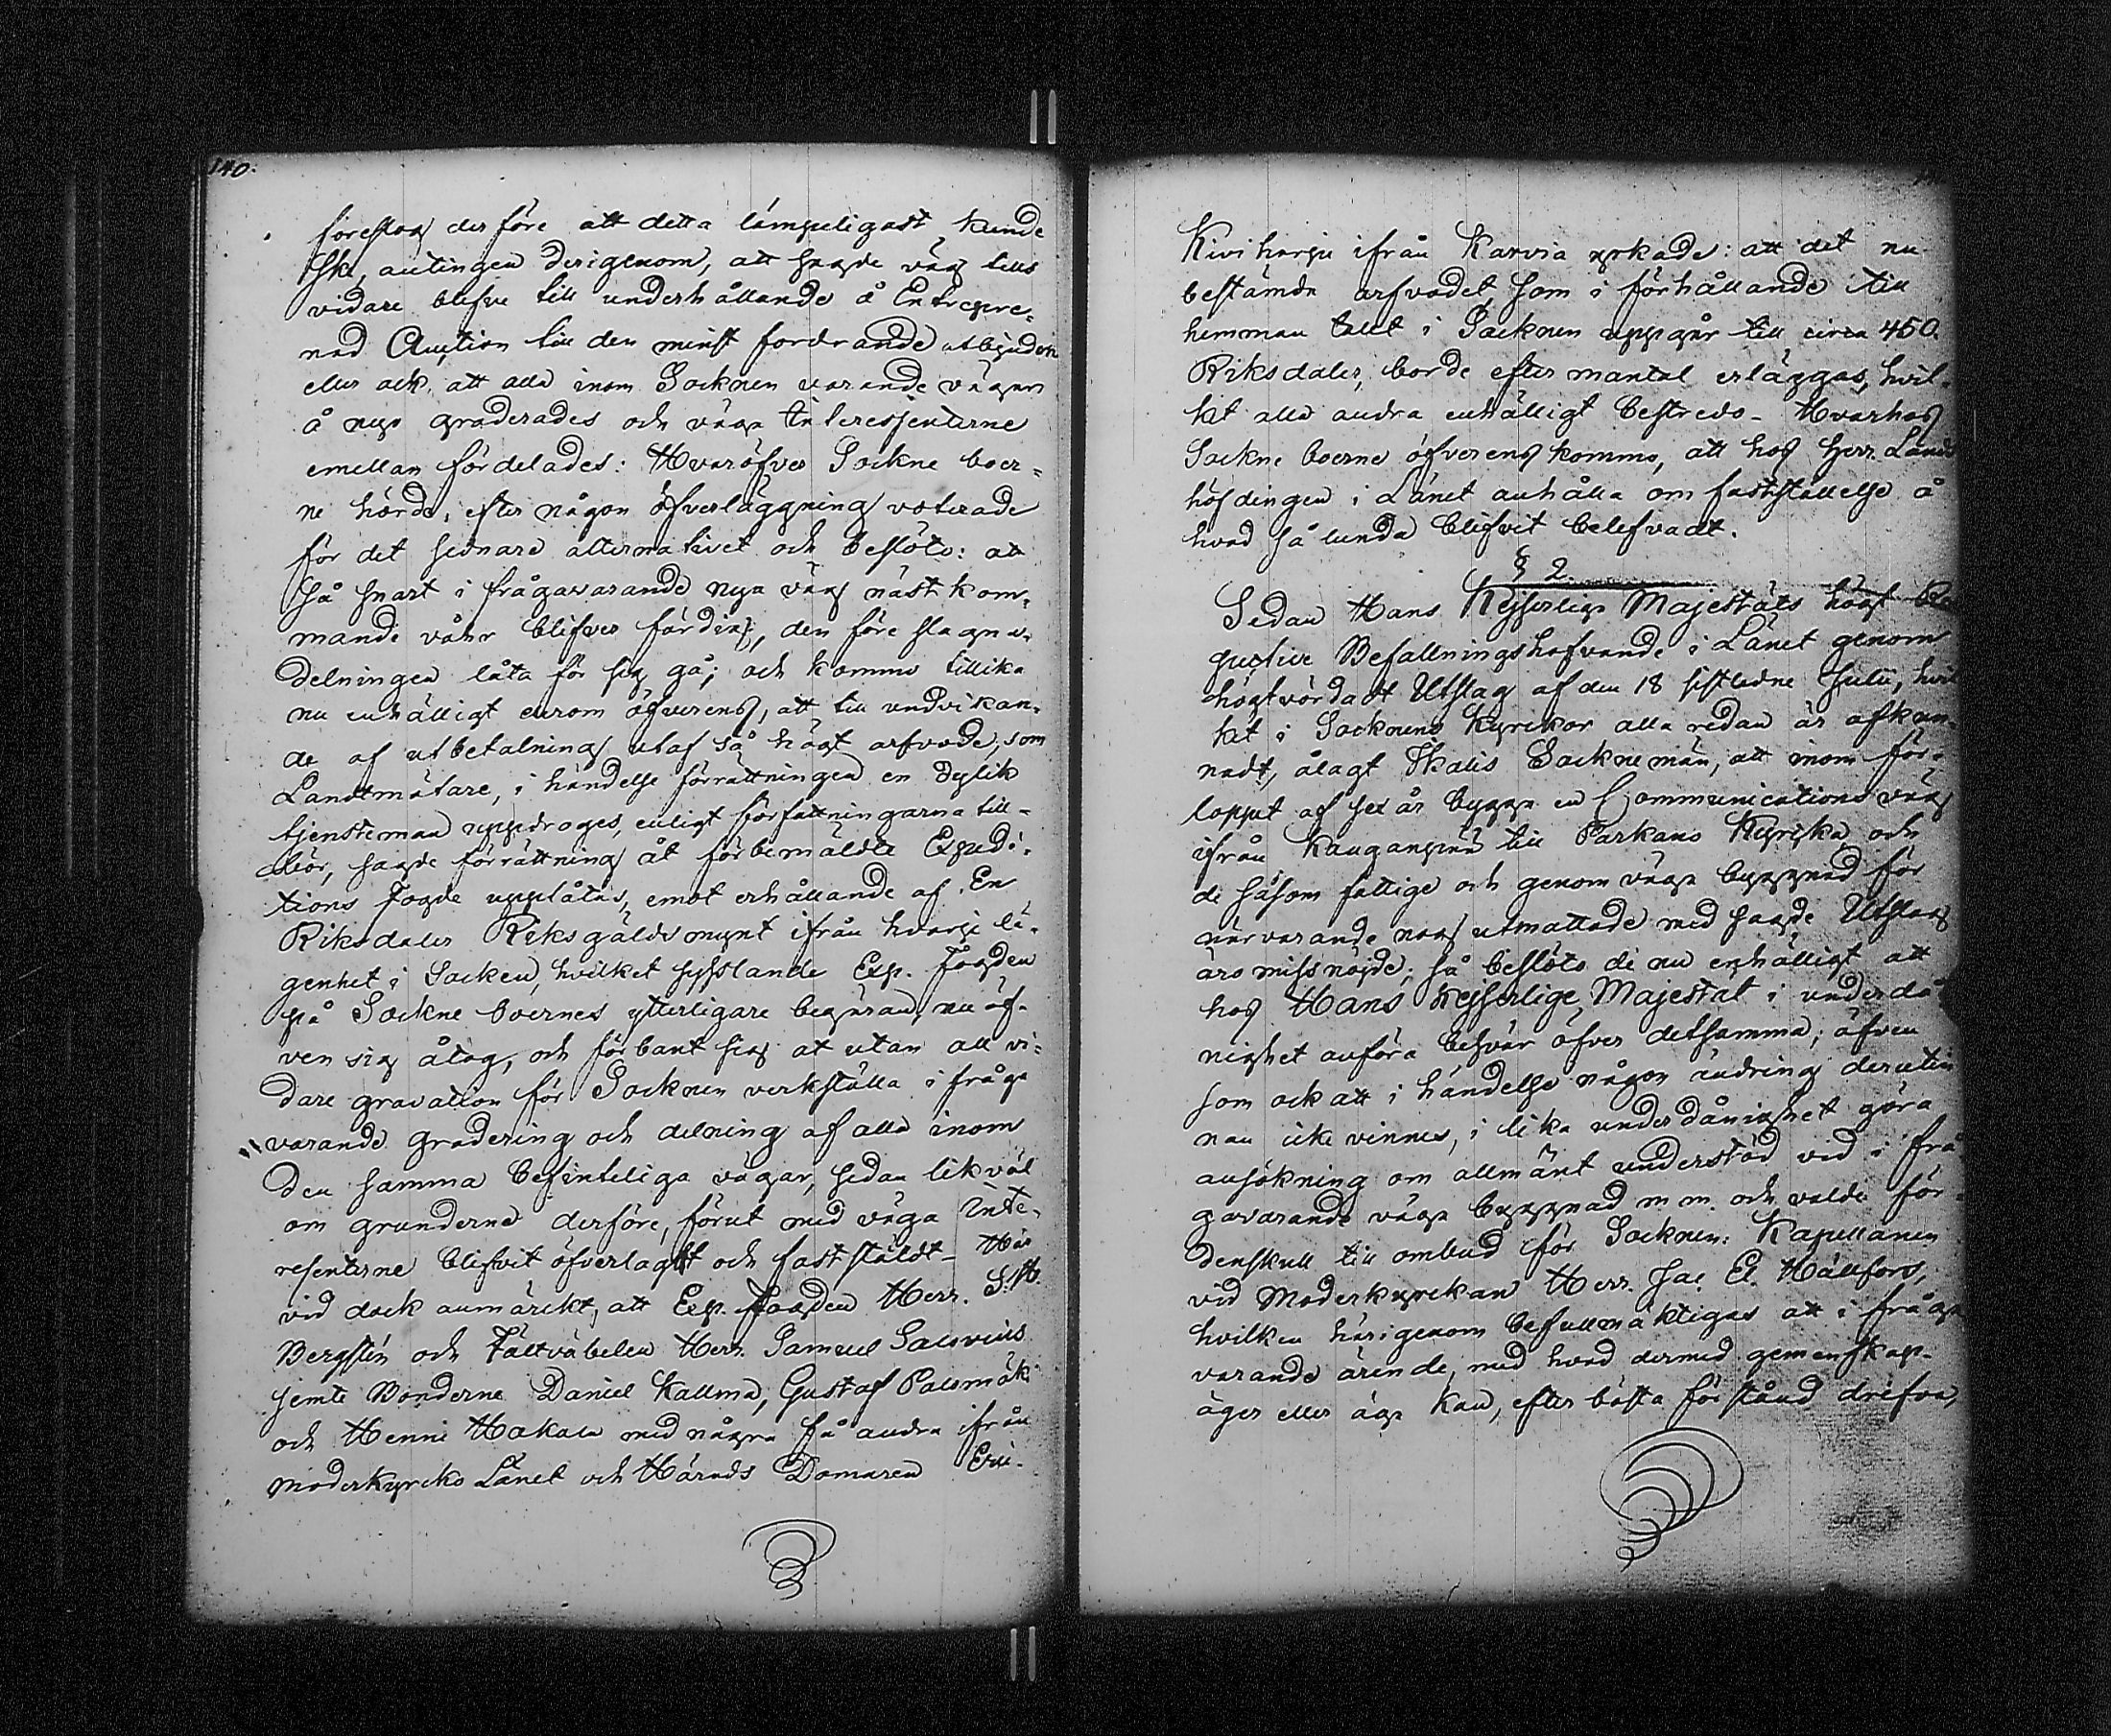 140.
föreslog derföre att detta lämpeligast kunde
ske, antingen derigenom, att sagde väg tills
vidare blefve till underhållande å Entrepre-
nad Auction till den minst fordrande utbjuden
eller ock, att alla inom Socknen varande vägar
å nyo graderades och väga Interessenterne
emellan fördelades: Hvaröfver Sockne boer-
ne hörde, efter någon öfverläggning voterade
för det sednare alternativet och beslöto: att
så snart i frågavarande nya väg nästkom-
mande våhr blifver färdig, den före slagna
delningen låta för sig gå; och kommo tillika
nu enhälligt öfverens, att till undvikan-
de af utbetalning utaf så högt arfvode, som
Landtmätare, i händelse förrättningen en dylik
tjensteman uppdroges, enligt författningarna till-
hör, sagde förrättning åt förbemälde Expedi-
tions Fogde upplåtas, emot erhållande af En
Riksdaler Riksgälds mynt ifrån hvarje lä-
genhet i Socken, hvilket sysslande Exp. Fogden
på Sockne boernes ytterligare begäran, nu äf-
ven sig åtog, och förbant sig at utan all vi-
dare gravation för Socknen verkställa i fråga
varande gradering och delning af alla inom
den samma befinteliga vägar, sedan likväl
om grunderne derföre, förut med väga Inte-
resenterne blifvit öfverlagt och fastställdt - Här
vid dock anmärckt, att Exp. Fogden Herr. S. H.
Bergstén och Fältväbelen Herr. Samuel Salovius
jemte Bönderne Daniel Kallma, Gustaf Palomäki
och Henni Hakala med några få andra ifrån
moderkyrko Länet och Härads Domaren Eric
Kiviharju ifrån Karvia yrkade: att det nu
bestämda arfvodet, som i förhållande till
hemman talet i Socknen uppgår till circa 450.
Riksdaler, borde efter mantal erläggas, hvil-
ket alla andra enhälligt bestredo - Hvarhos
Sockne boerne öfverens kommo, att hos Herr. Lands
höfdingen i Länet anhålla om fastställelse å
hvad så lunda blifvit belefvadt.
§ 2.
Sedan Hans Kejserliga Majestäts högt
Befallningshafvande i Länet genom
högtvördadt Utslag af den 18 sistledne Julii, hvil
ket i Socknens Kyrckor alla redan är afkun-
nadt, ålagt Ikalis Socknemän, att inom för-
loppet af sex år bygga en Communications väg
ifrån Kauganperä till Parkano Kyrcka, och
de såsom fattige och genom väga byggnad för
närvarande nog utmattade med sagde Utslag
äro missnöjde; så beslöto de nu enhälligt att
hos Hans Kejserlige Majestät i underdå
nighet anföra besvär öfver detsamma; äfven
som ock att i händelse någon ändring derutin
nan icke vinnes, i lika underdånighet göra
ansökning om allmänt understöd vid i frå
gavarande väga byggnad m m. och valde för
denskull till ombud för Socknen: Kapellanen
vid Moderkyrckan Herr. Jac. El. Hällfors,
hvilken härigenom befullmäktigas att i fråga
varande ärende, med hvad dermed gemenskap
äger eller äga kan, efter bästa förstånd drifva,